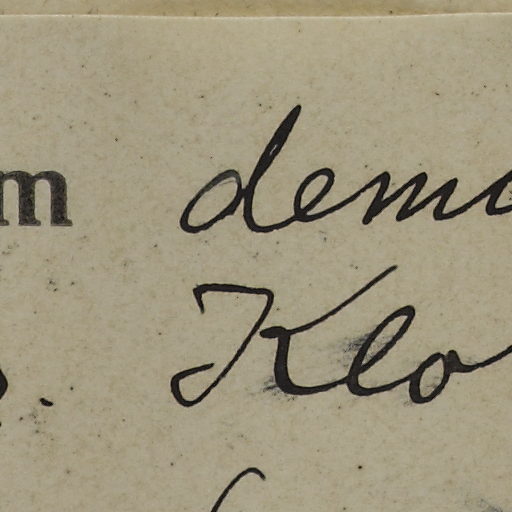 m demo
. Klo